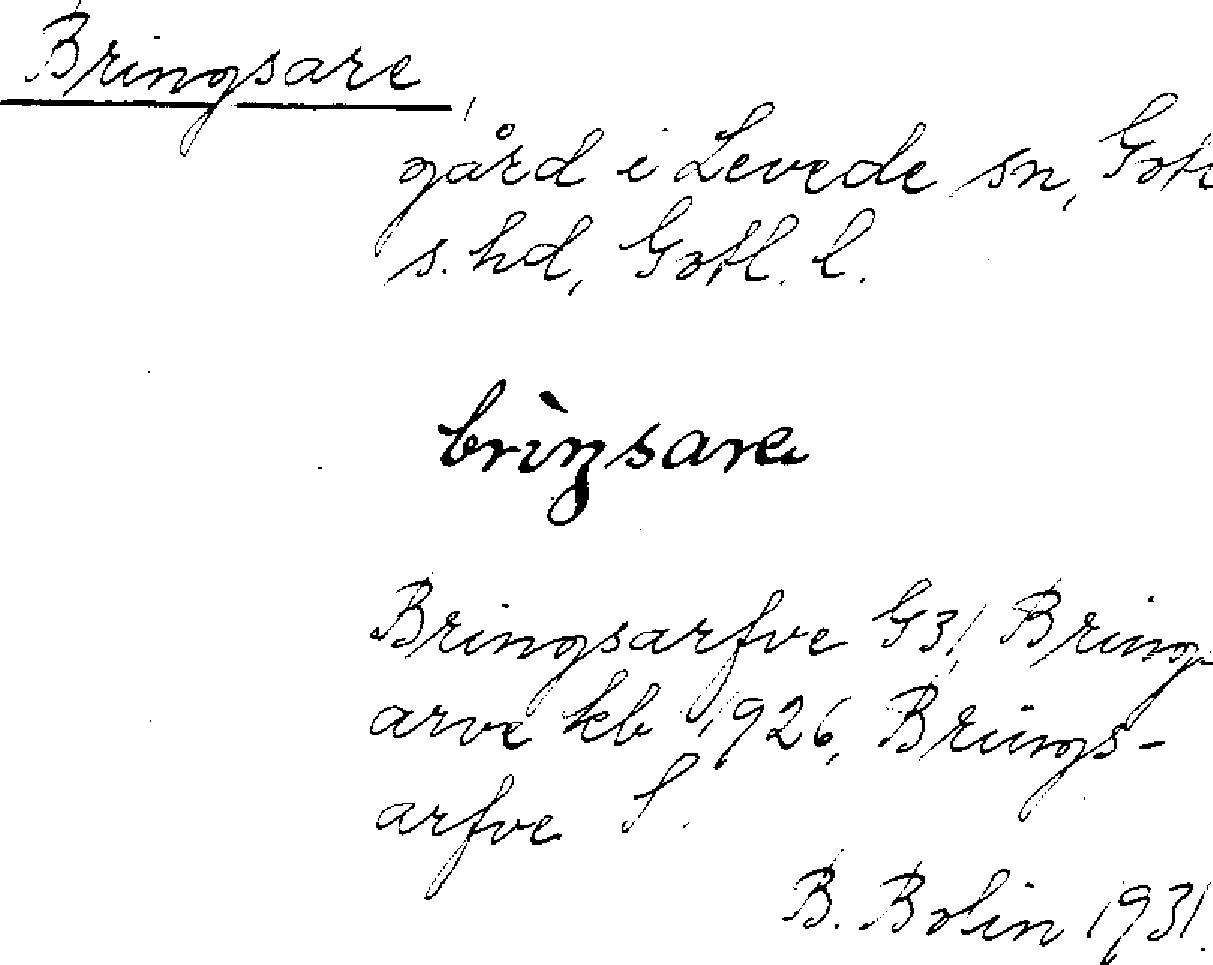 Bringsare,
gård i Levede sn, Gotl
s. hd, Gotl. l.
brìŋsare
Bringsarfve G31, Brings-
arve kb 1926, Brings-
arfve S.
B. Bolin 1931.